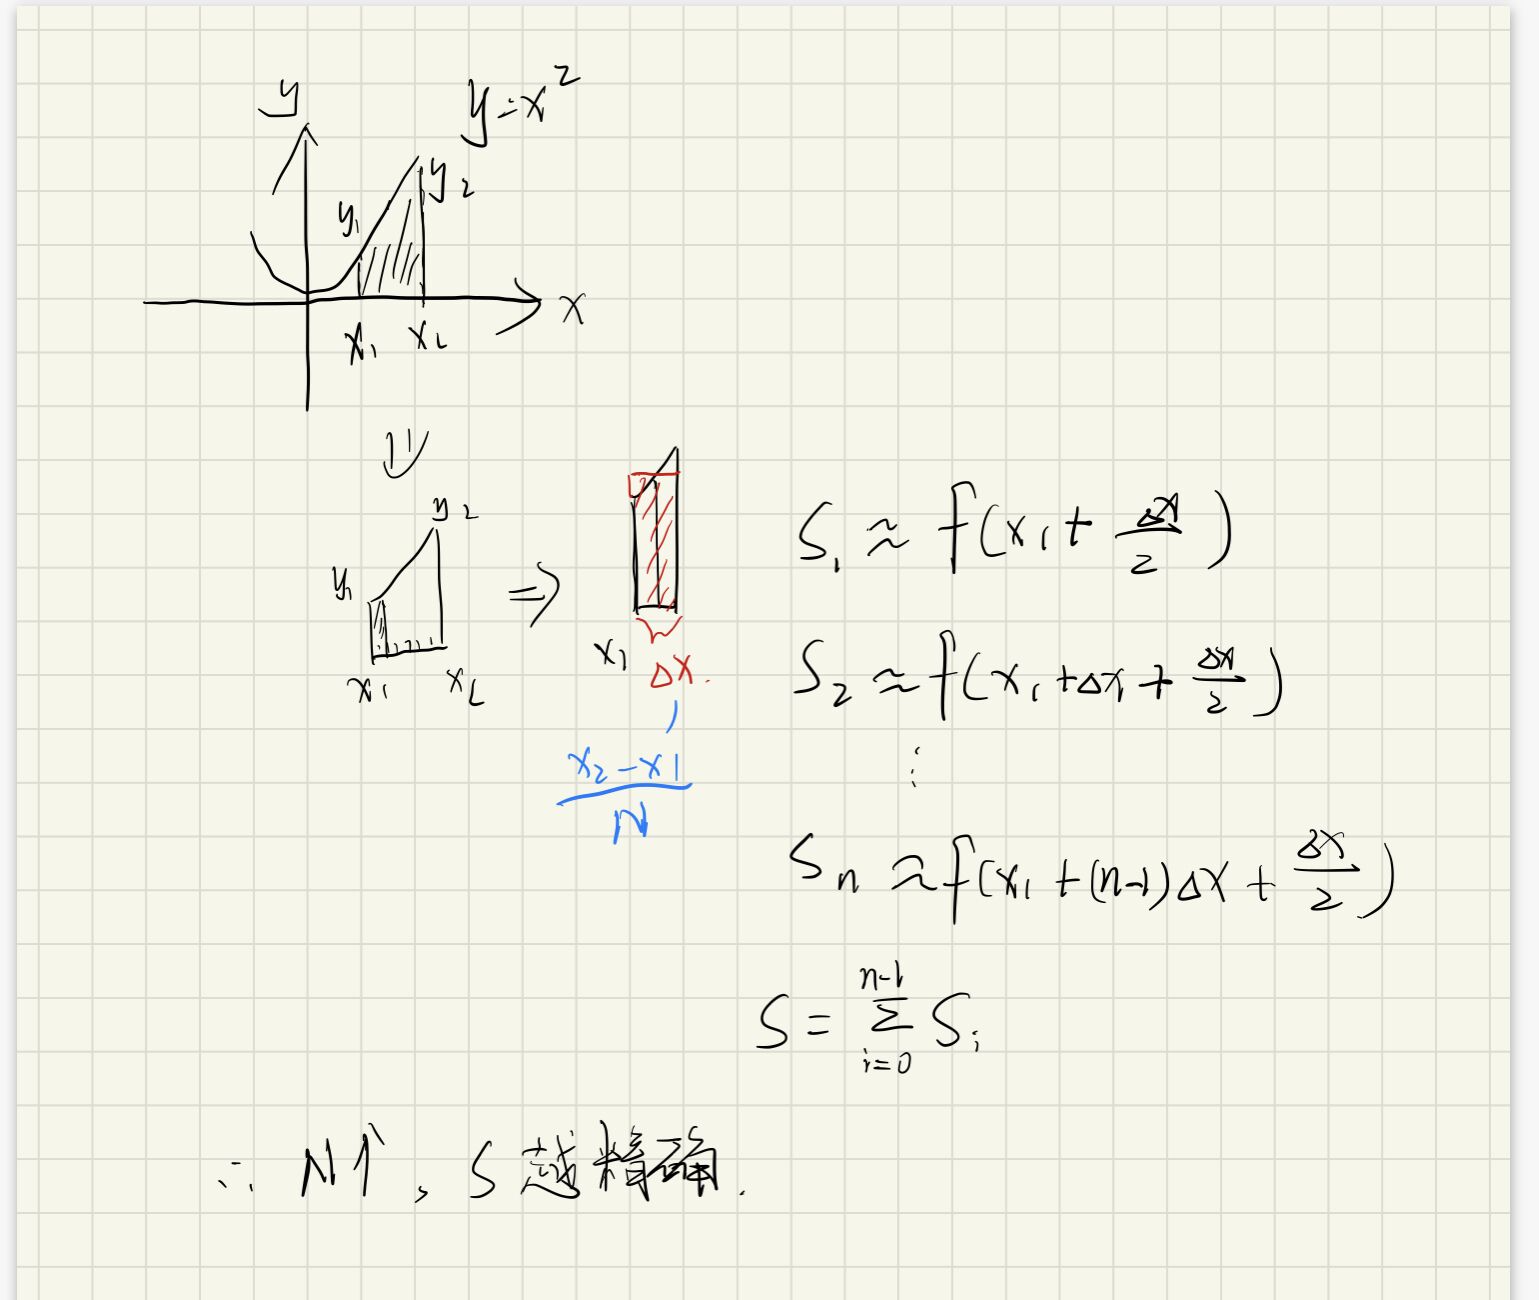 y
y=x²
y₁
y₂
x₁
x₂
x
y₂
y₁
⇒
x₁
x₂
x₁
Δx.
x₂-x1
N
S₁ ≈ f(x₁+Δx/2)
S₂ ≈ f(x₁+Δx+Δx/2)
⋮
Sn ≈ f(x₁+(n-1)Δx+Δx/2)
n-1
S = Σ Si
i=0
∴ N↑, S越精确.